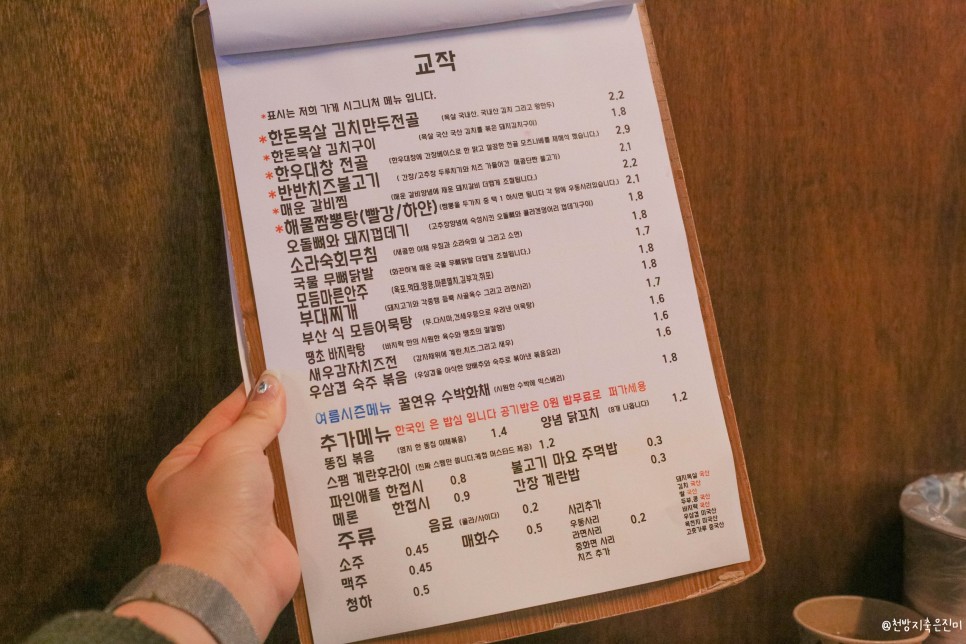 교작
*표시는 저희 가게 시그니처 메뉴 입니다.
*한돈목살 김치만두전골 (목살 국내산, 국내산 김치 그리고 왕만두) 2.2
*한돈목살 김치구이 (목살 국산 국산 김치를 볶은 돼지김치구이) 1.8
*한우대창 전골 (한우대창에 간장베이스로 한 맑고 깔끔한 전골 모츠나베를 재해석 했습니다.) 2.9
*반반치즈불고기 (간장/고추장 두루치기와 치즈 가들어간 매콤단한 불고기) 2.1
*매운 갈비찜 (매운 갈비양념에 재운 돼지갈비 더맵게 조절됩니다.) 2.2
*해물짬뽕탕(빨강/하얀) (짬뽕을 두가지 중 택 1 하시면 됩니다 각 탕에 우동사리있습니다.) 2.1
오돌뼈와 돼지껍데기 (고추장양념에 숙성시킨 오돌뼈와 콜라겐덩어리 껍데기구이) 1.8
소라숙회무침 (새콤한 야채 무침과 소라숙회 살 그리고 소면) 1.8
국물 무뼈닭발 (화끈하게 매운 국물 무뼈닭발 더맵게 조절됩니다.) 1.7
모듬마른안주 (육포,먹태,땅콩,마른멸치,김부각,쥐포) 1.8
부대찌개 (돼지고기와 각종햄 듬뿍 사골육수 그리고 라면사리) 1.8
부산 식 모듬어묵탕 (무,다시마,건새우등으로 우려낸 어묵탕) 1.7
땡초 바지락탕 (바지락 만의 시원한 육수와 땡초의 칼칼함) 1.6
새우감자치즈전 (감자채위에 계란,치즈,그리고 새우) 1.6
우삼겹 숙주 볶음 (우삼겹을 아삭한 양배추와 숙주로 볶아낸 볶음요리) 1.6
여름시즌메뉴 꿀연유 수박화채 (시원한 수박에 믹스베리) 1.8
추가메뉴 한국인 은 밥심 입니다 공기밥은 0원 밥무료로 퍼가세용
똥집 볶음 (염지 한 똥집 야채볶음) 1.4 양념 닭꼬치 (8개 나옵니다) 1.2
스팸 계란후라이 (진짜 스팸만 씁니다.케첩 머스타드 제공) 1.2
파인애플 한접시 0.8 불고기 마요 주먹밥 0.3
메론 한접시 0.9 간장 계란밥 0.3
주류 음료 (콜라/사이다) 0.2 사리추가
소주 0.45 매화수 0.5 우동사리 0.2
맥주 0.45 라면사리
청하 0.5 중화면 사리
치즈 추가
돼지목살 국산
김치 국산
쌀 국산
두부,콩 국산
바지락 국산
우삼겹 미국산
육전지 미국산
고춧가루 중국산
@천방지축은진미